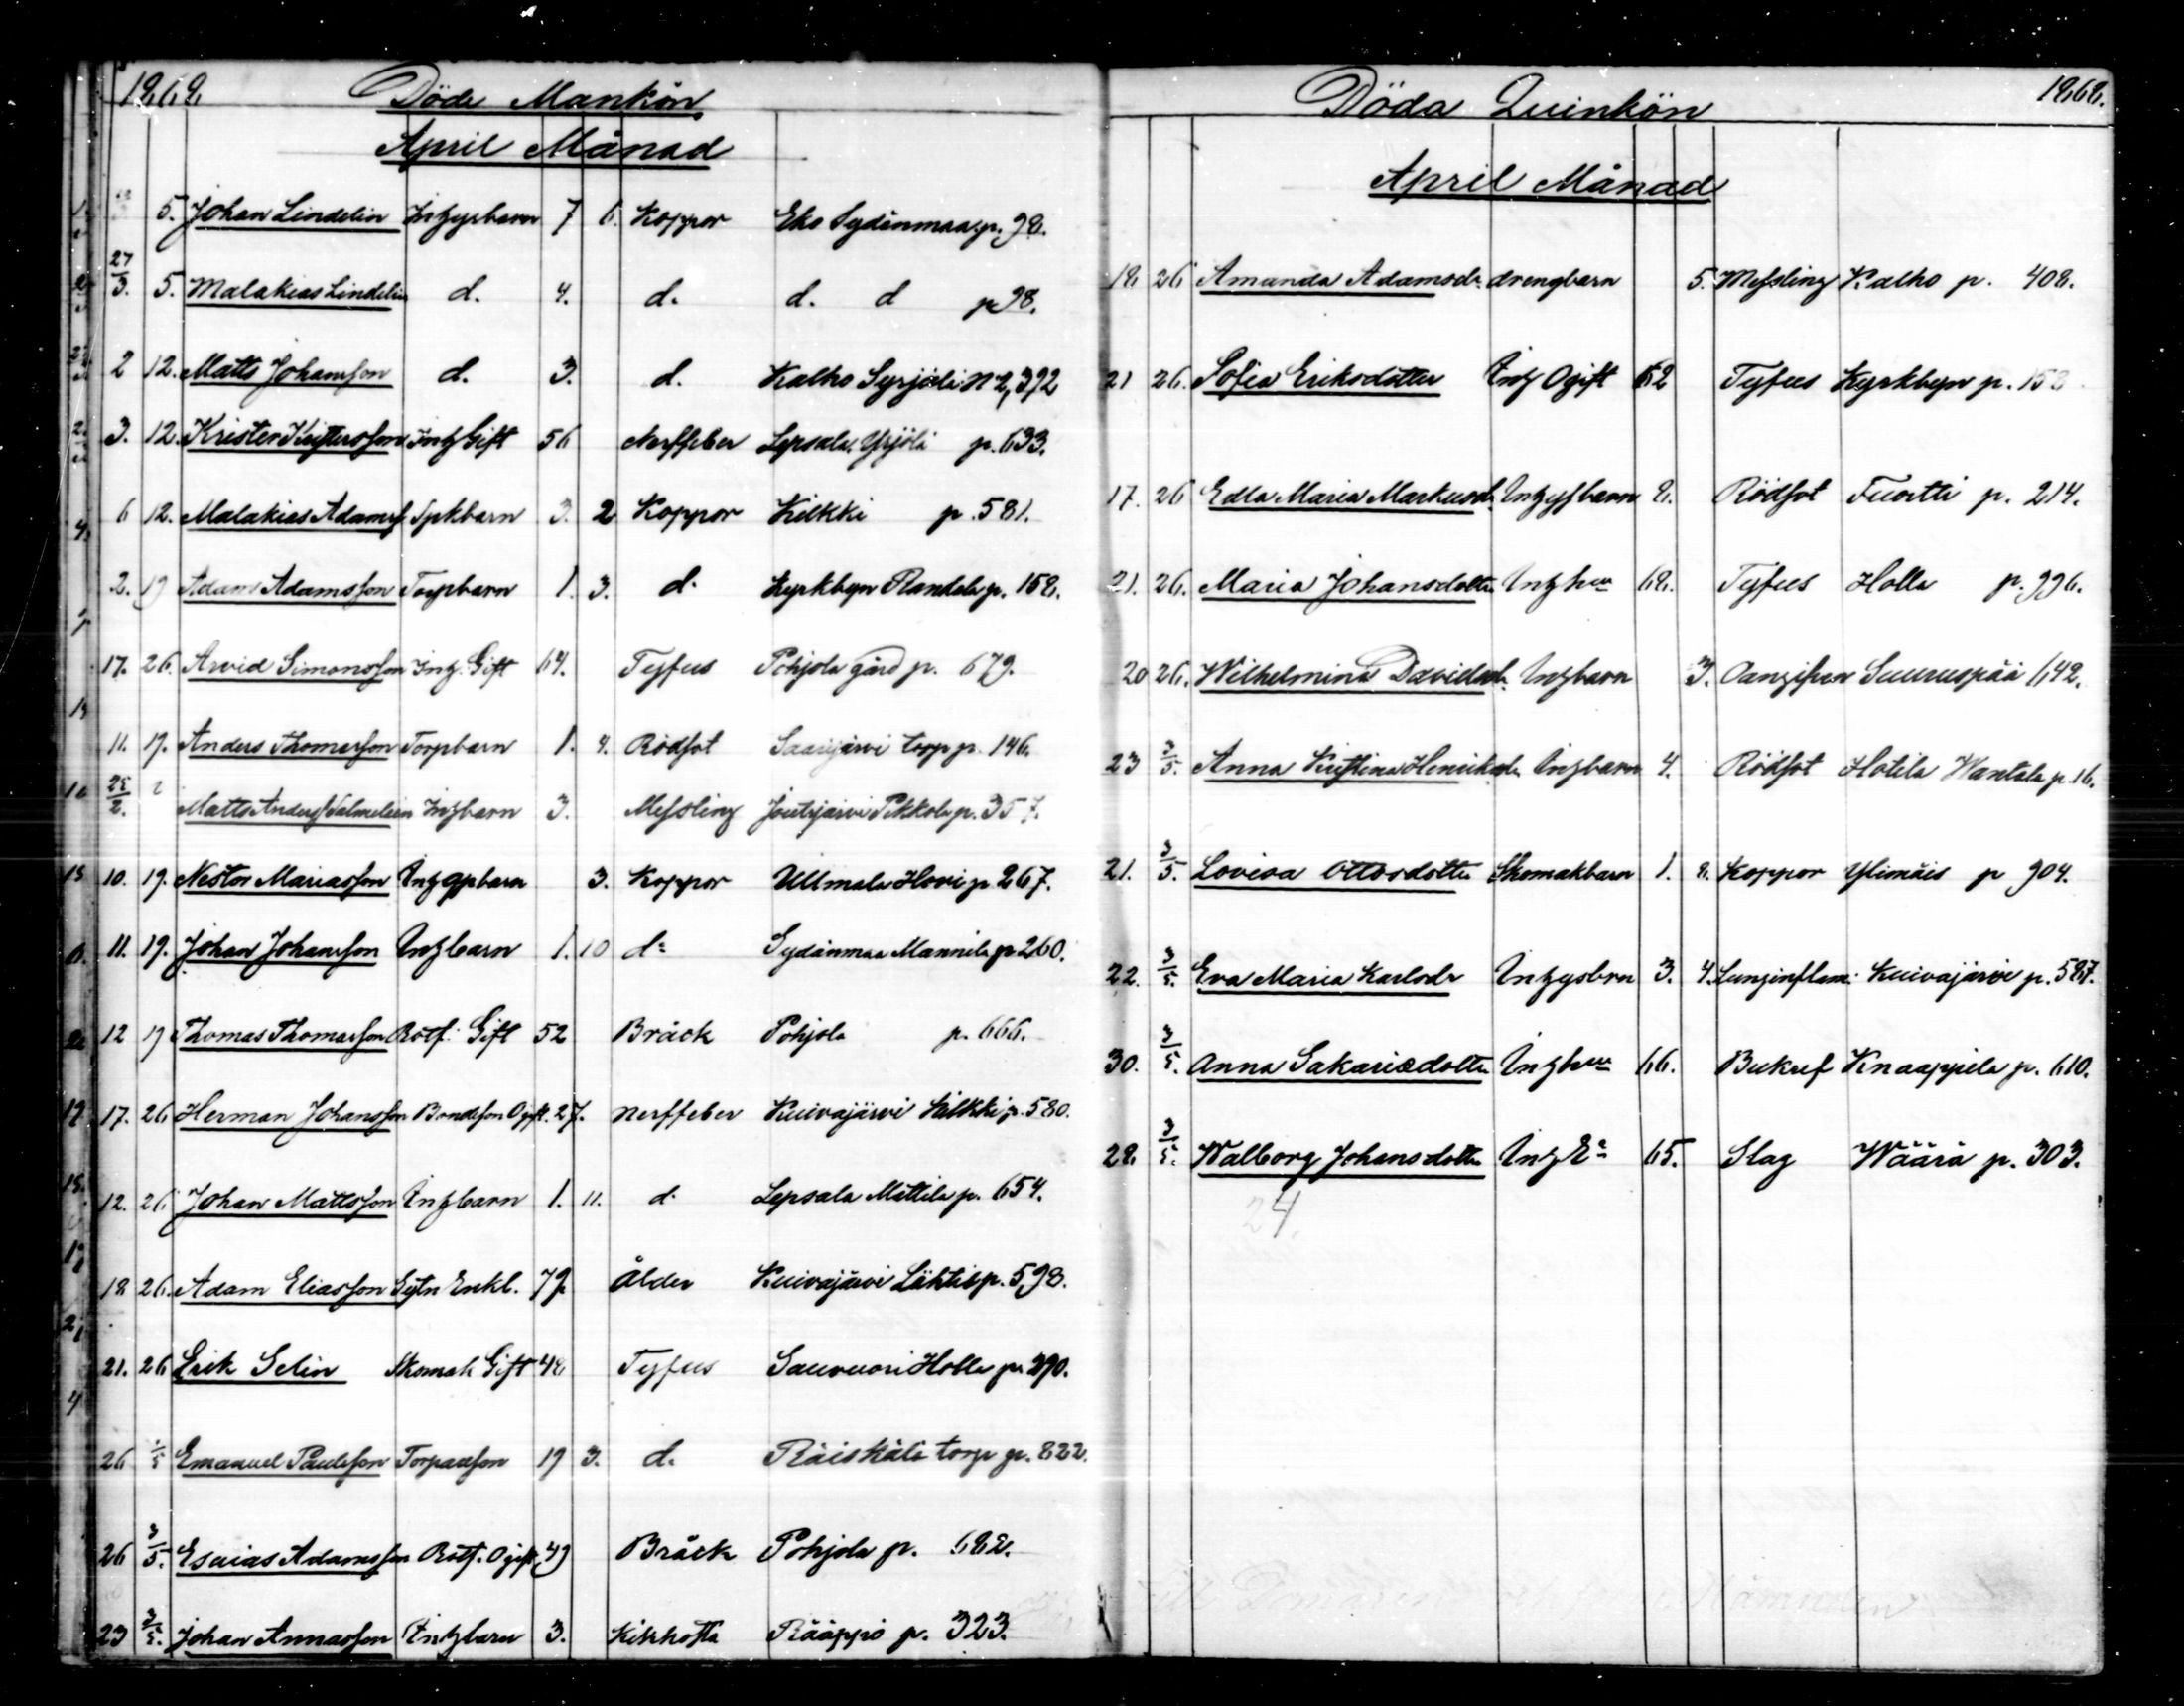 1868 Döde Mankön
April Månad
5. Johan Lindelin Inhysbarn 7 6. Koppor Eko Sydänmaa p. 98.
27/3. 5. Malakias Lindelin d. 4. d. d. d p 98.
2 12. Matts Johansson d. 3. d. Kalho Syrjälä N 2, 392
3. 12. Krister Kristersson Inh Gift 56 Nerffeber Lepsala Yrjölä p. 633.
6 12. Malakias Adamss. Sytbarn 3. 2 Koppor Kilkki p. 581.
2. 19 Adam Adamsson Torpbarn 1. 3. d. Kyrkbyn Randala p. 158.
17. 26. Arvid Simonsson Inh. Gift 64. Tyfus Pohjola gård p. 679.
11. 19. Anders Thomasson Torpbarn 1. 4. Rödsot Saarijärvi torp p. 146.
Matts Anders Salmelain Inhbarn 3. Messling Joutsjärvi Pekkola p. 357.
10. 19. Nestor Mariasson Inh barn 3. Koppor Ullmala Hovi p 267.
11. 19. Johan Johansson Inhbarn 1. 10 d: Sydänmaa Mannila p 260.
12 19 Thomas Thomasson Rotf. Gift 52 Bråck Pohjola p. 666.
17. 26 Herman Johansson Bondeson Ogift. 27. Nerffeber Kuivajärvi Kilkki p. 580.
12. 26 Johan Mattsson Inhbarn 1. 11. d. Lepsala Mattila p. 654.
18 26. Adam Eliasson Sytn Enkl. 79 Ålder Kuivajärvi Lähtis p. 598.
21. 26 Erik Selin Skomak Gift 48 Tyfus Sauvuori Holla p. 290.
26 Emanuel Paulsson Torpareson 19 3. d. Räiskälä torp p. 822.
26 3/5. Esaias Adamsson Rotf. Ogift 49 Bråck Pohjola p. 682.
23 3/5. Johan Annasson Inhbarn 3. Kikhosta Rääppö p. 323.
Döda Quinkön 1868.
April Månad
18 26 Amanda Adamsdr. drengbarn 5. Messling Kalho p. 408.
21 26. Sofia Eriksdotter Inh Ogift 62 Tyfus Kyrkbyn p. 158
17. 26 Edla Maria Markusd. Inhysbarn 8. Rödsot Tuortti p. 214.
21. 26. Maria Johansdotter Inh hu 68. Tyfus Holla p. 996.
20 26. Wilhelmina Davidsd. Inhbarn 3. Suuruspää 642.
23 3/5. Anna Kristina Henriksdr. Inhbarn 4. Rödsot Hotila Wantala p. 16.
21. 3/5. Lovisa Ottosdotter Skomakbarn 1. 8. Koppor Ylimäis p 904.
22. 3/5. Eva Maria Karlsdr Inhysbrn 3. 4. Lunginflam. Kuivajärvi p. 587.
30. 3/5. Anna Sakariædotter Inh hu 66. Bukref Knaapila p. 610.
28. 3/5. Walborg Johansdotter Inh Ea 65. Slag Wäärä p. 303.
24